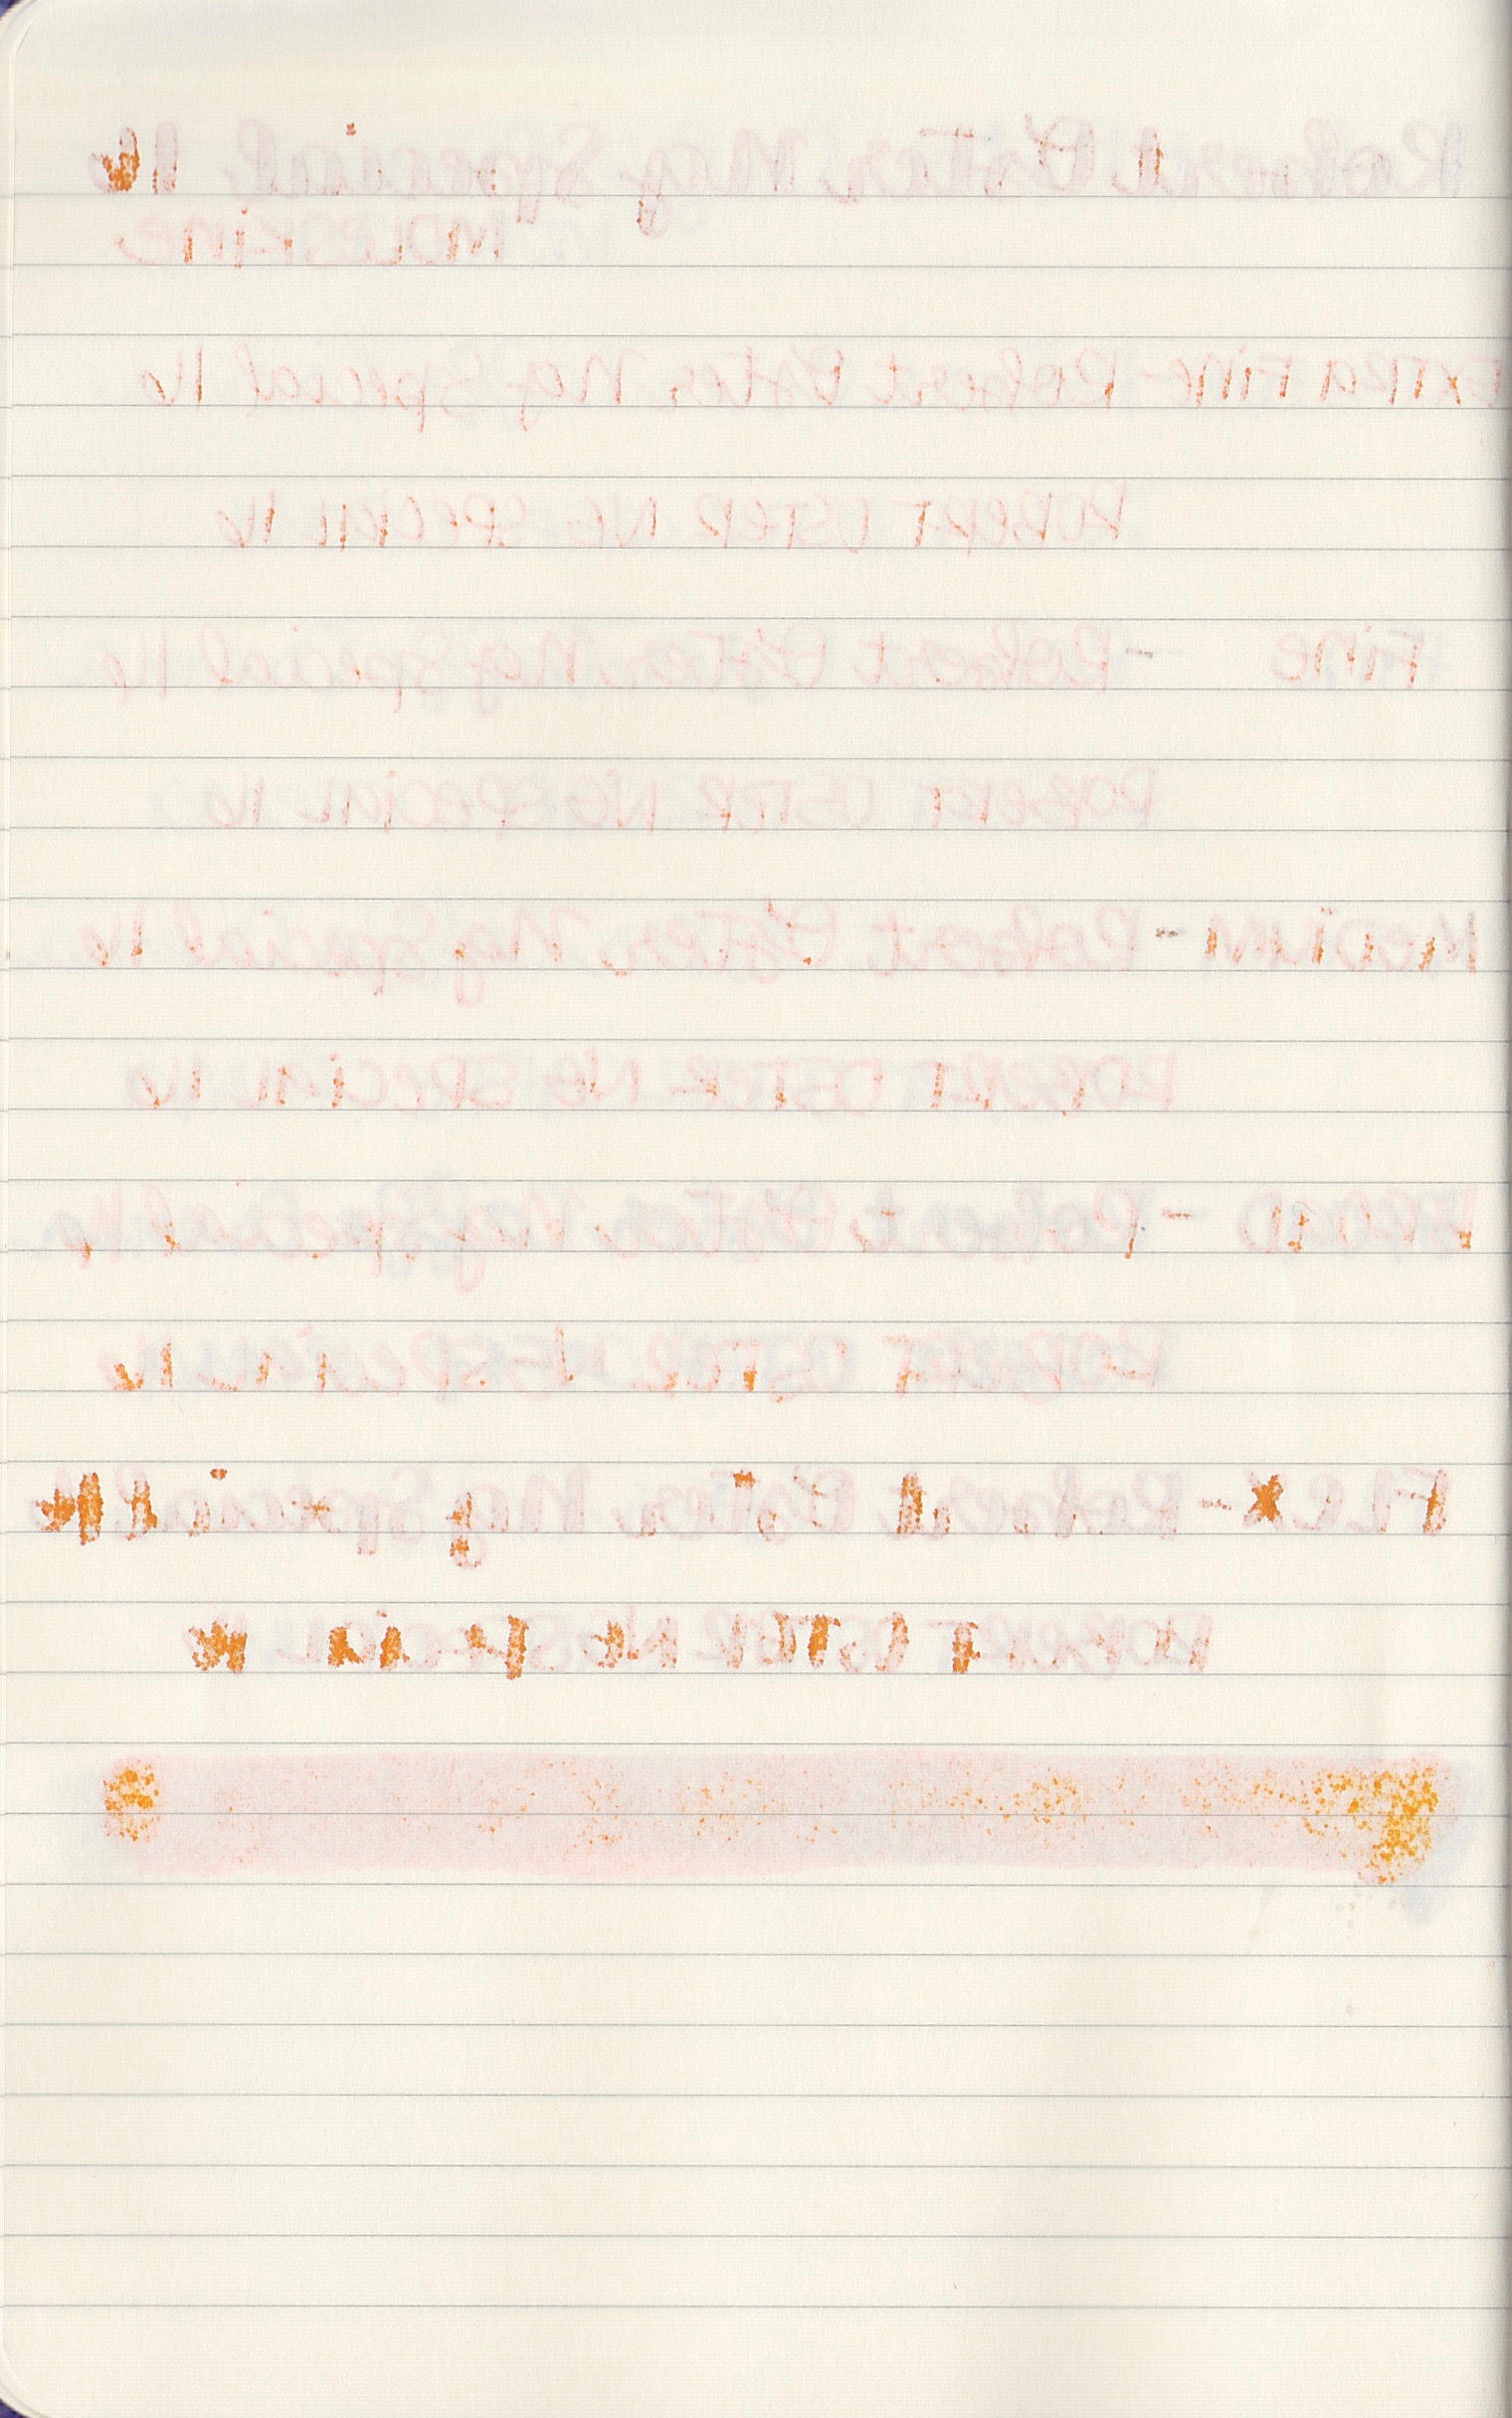 Robert Oster Ng Special 16
MOLESKINE
EXTRA FINE - Robert Oster Ng Special 16
ROBERT OSTER NG SPECIAL 16
FINE - Robert Oster Ng Special 16
ROBERT OSTER NG SPECIAL 16
MEDIUM - Robert Oster Ng Special 16
ROBERT OSTER NG SPECIAL 16
BROAD - Robert Oster Ng Special 16
ROBERT OSTER NG SPECIAL 16
FLEX - Robert Oster Ng Special 16
ROBERT OSTER NG SPECIAL 16